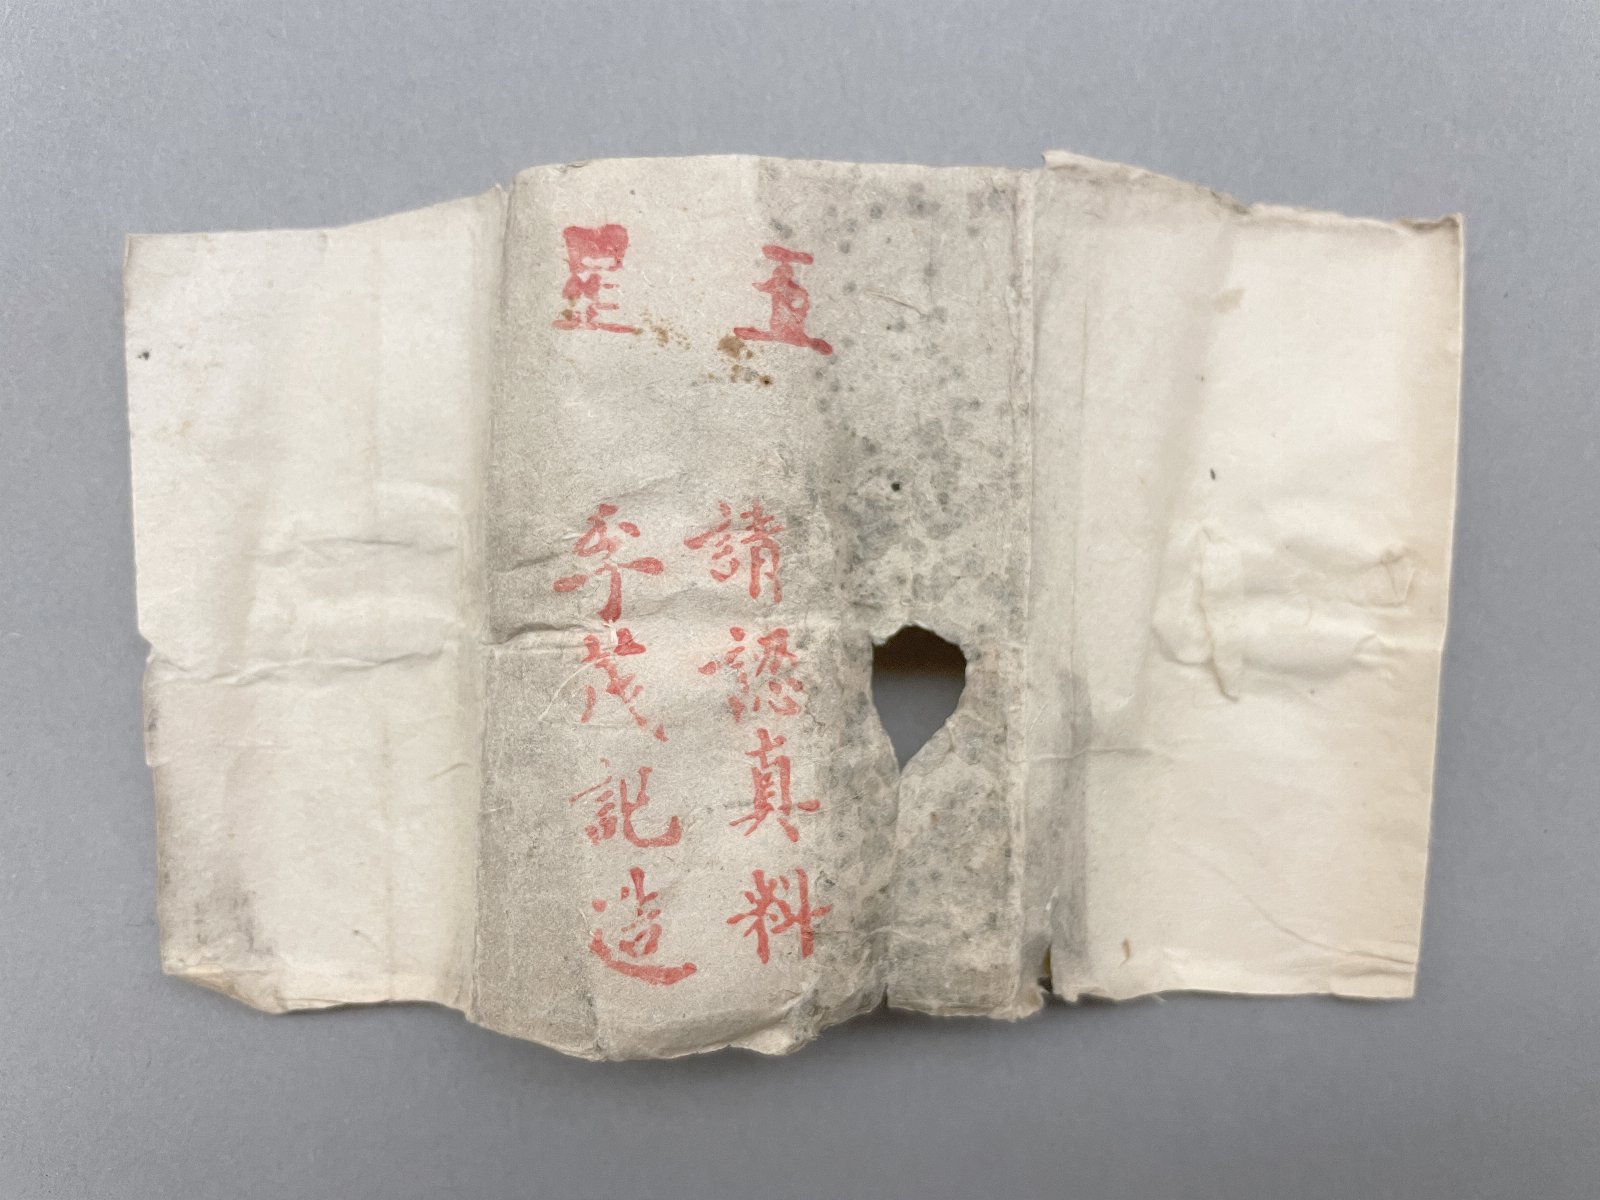 五星
請認真料
李茂記造